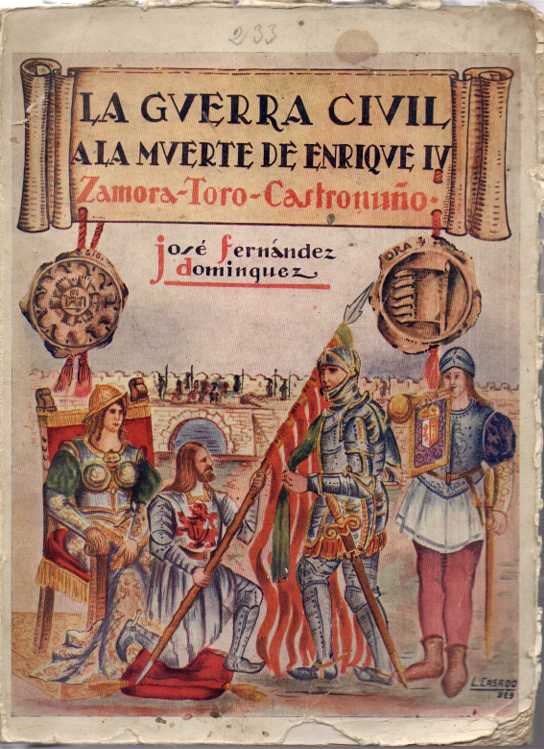 233
LA GVERRA CIVIL
A LA MVERTE DE ENRIQVE IV
Zamora-Toro-Castronuño.
José Fernández
Dominguez
ORA
L. CASADO